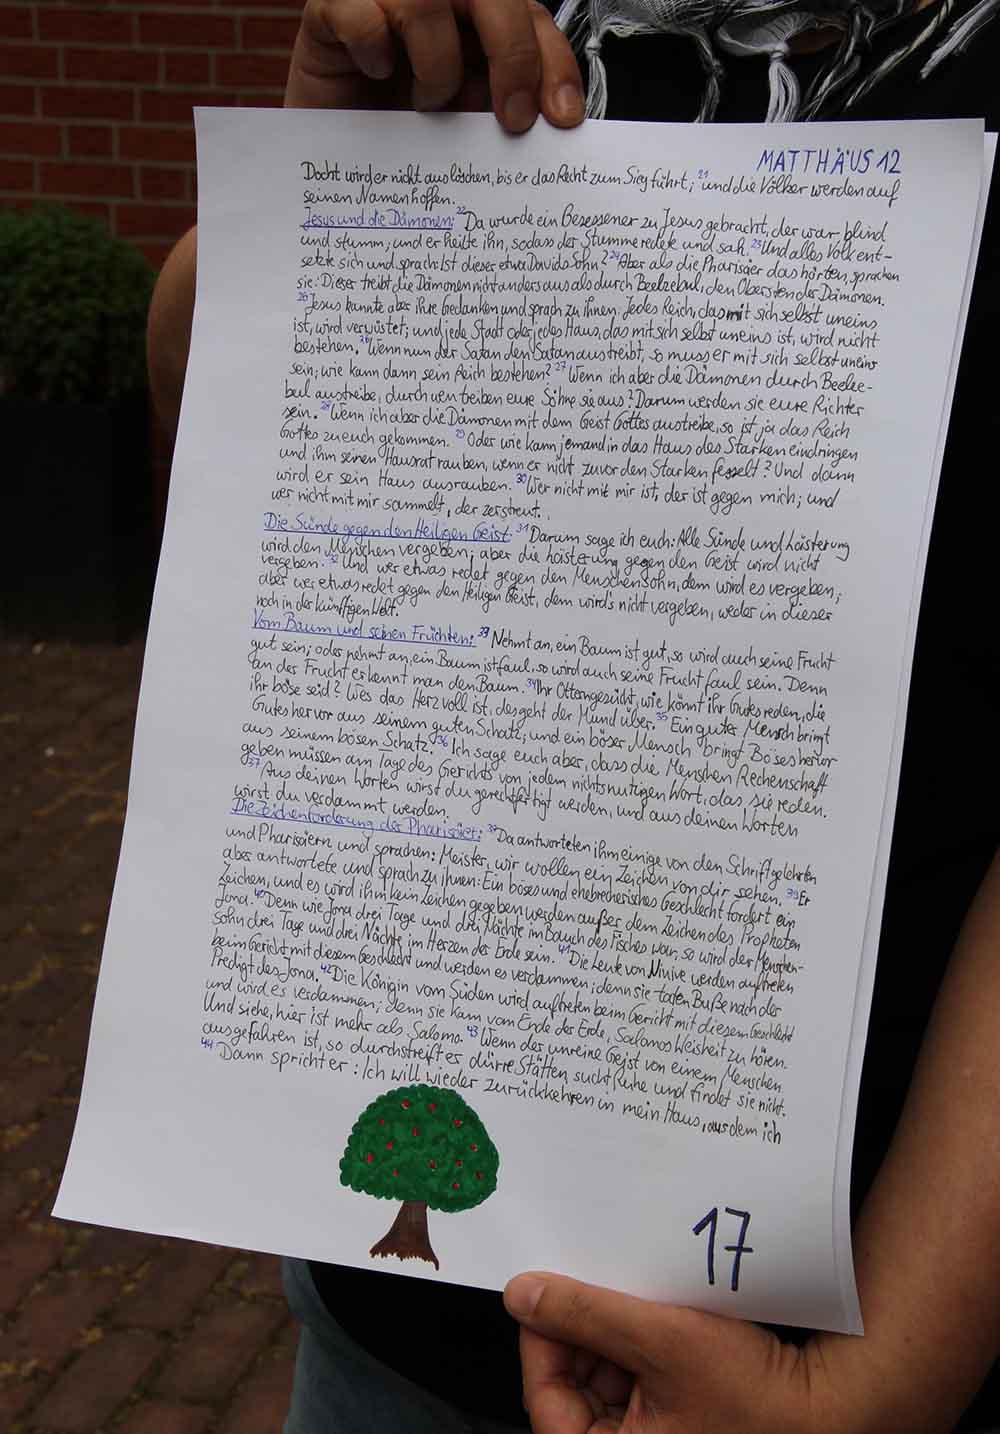 MATTHÄUS 12
Docht wird er nicht auslöschen, bis er das Recht zum Sieg führt; 21 und die Völker werden auf
seinen Namen hoffen.
Jesus und die Dämonen: 22 Da wurde ein Besessener zu Jesus gebracht, der war blind
und stumm; und er heilte ihn, sodass der Stumme redete und sah. 23 Und alles Volk ent-
setzte sich und sprach: Ist dieser etwa Davids Sohn? 24 Aber als die Pharisäer das hörten, sprachen
sie: Dieser treibt die Dämonen nicht anders aus als durch Beelzebul, den Obersten der Dämonen.
Jesus kannte aber ihre Gedanken und sprach zu ihnen: Jedes Reich, das mit sich selbst uneins
ist, wird verwüstet; und jede Stadt oder jedes Haus, das mit sich selbst uneins ist, wird nicht
bestehen. 26 Wenn nun der Satan den Satan austreibt, so muss er mit sich selbst uneins
sein; wie kann dann sein Reich bestehen? 27 Wenn ich aber die Dämonen durch Beelze-
bul austreibe, durch wen treiben eure Söhne sie aus? Darum werden sie eure Richter
sein. 28 Wenn ich aber die Dämonen mit dem Geist Gottes austreibe, so ist ja das Reich
Gottes zu euch gekommen. 29 Oder wie kann jemand in das Haus des Starken eindringen
und ihm seinen Hausrat rauben, wenn er nicht zuvor den Starken fesselt? Und dann
wird er sein Haus ausrauben. 30 Wer nicht mit mir ist, der ist gegen mich; und
wer nicht mit mir sammelt, der zerstreut.
Die Sünde gegen den Heiligen Geist: 31 Darum sage ich euch: Alle Sünde und Lästerung
wird den Menschen vergeben; aber die Lästerung gegen den Geist wird nicht
vergeben. 32 Und wer etwas redet gegen den Menschensohn, dem wird es vergeben;
aber wer etwas redet gegen den Heiligen Geist, dem wird's nicht vergeben, weder in dieser
noch in der künftigen Welt.
Vom Baum und seinen Früchten: 33 Nehmt an, ein Baum ist gut, so wird auch seine Frucht
gut sein; oder nehmt an, ein Baum ist faul, so wird auch seine Frucht faul sein. Denn
an der Frucht erkennt man den Baum. 34 Ihr Otterngezücht, wie könnt ihr Gutes reden, die
ihr böse seid? Wes das Herz voll ist, des geht der Mund über. 35 Ein guter Mensch bringt
Gutes hervor aus seinem guten Schatz; und ein böser Mensch bringt Böses hervor
aus seinem bösen Schatz. 36 Ich sage euch aber, dass die Menschen Rechenschaft
geben müssen am Tage des Gerichts von jedem nichtsnutzigen Wort, das sie reden.
37 Aus deinen Worten wirst du gerechtfertigt werden, und aus deinen Worten
wirst du verdammt werden.
Die Zeichenforderung der Pharisäer: 38 Da antworteten ihm einige von den Schriftgelehrten
und Pharisäern und sprachen: Meister, wir wollen ein Zeichen von dir sehen. 39 Er
aber antwortete und sprach zu ihnen: Ein böses und ehebrecherisches Geschlecht fordert ein
Zeichen, und es wird ihm kein Zeichen gegeben werden außer dem Zeichen des Propheten
Jona. 40 Denn wie Jona drei Tage und drei Nächte im Bauch des Fisches war, so wird der Menschen-
sohn drei Tage und drei Nächte im Herzen der Erde sein. 41 Die Leute von Ninive werden auftreten
beim Gericht mit diesem Geschlecht und werden es verdammen; denn sie taten Buße nach der
Predigt des Jona. 42 Die Königin vom Süden wird auftreten beim Gericht mit diesem Geschlecht
und wird es verdammen; denn sie kam vom Ende der Erde, Salomos Weisheit zu hören.
Und siehe, hier ist mehr als Salomo. 43 Wenn der unreine Geist von einem Menschen
ausgefahren ist, so durchstreift er dürre Stätten, sucht Ruhe und findet sie nicht.
44 Dann spricht er: Ich will wieder zurückkehren in mein Haus, aus dem ich
17